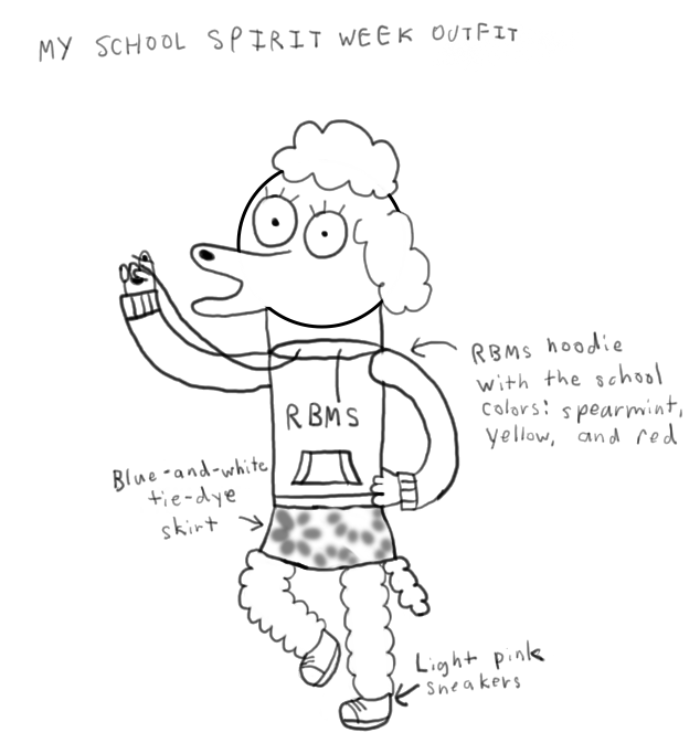 MY SCHOOL SPIRIT WEEK OUTFIT
RBMS hoodie
with the school
colors: spearmint,
yellow, and red
RBMS
Blue-and-white
tie-dye
skirt
Light pink
sneakers